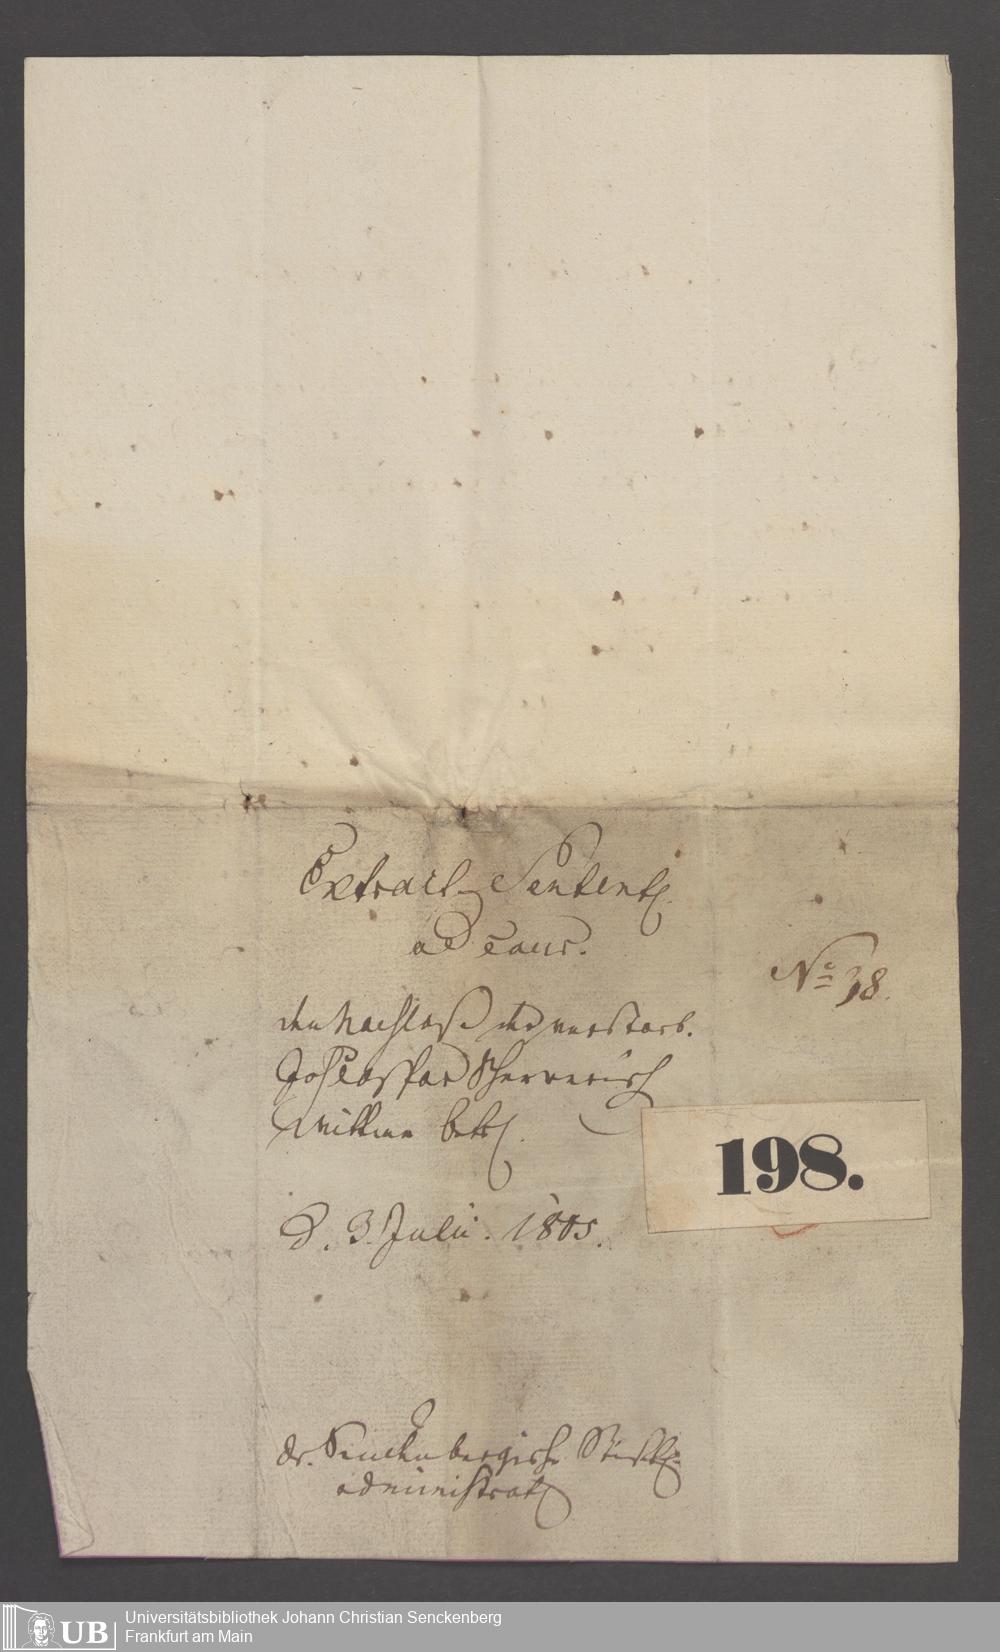 Extract Sentent.
ad caus.
den Nachlaß der verstorb.
Joh Caspar
Wittwe betr.
d. 3. Julii. 1805.
No 38.
198.
dr. Senckenbergische Stiftgs.
administrat
UB
Universitätsbibliothek Johann Christian Senckenberg
Frankfurt am Main